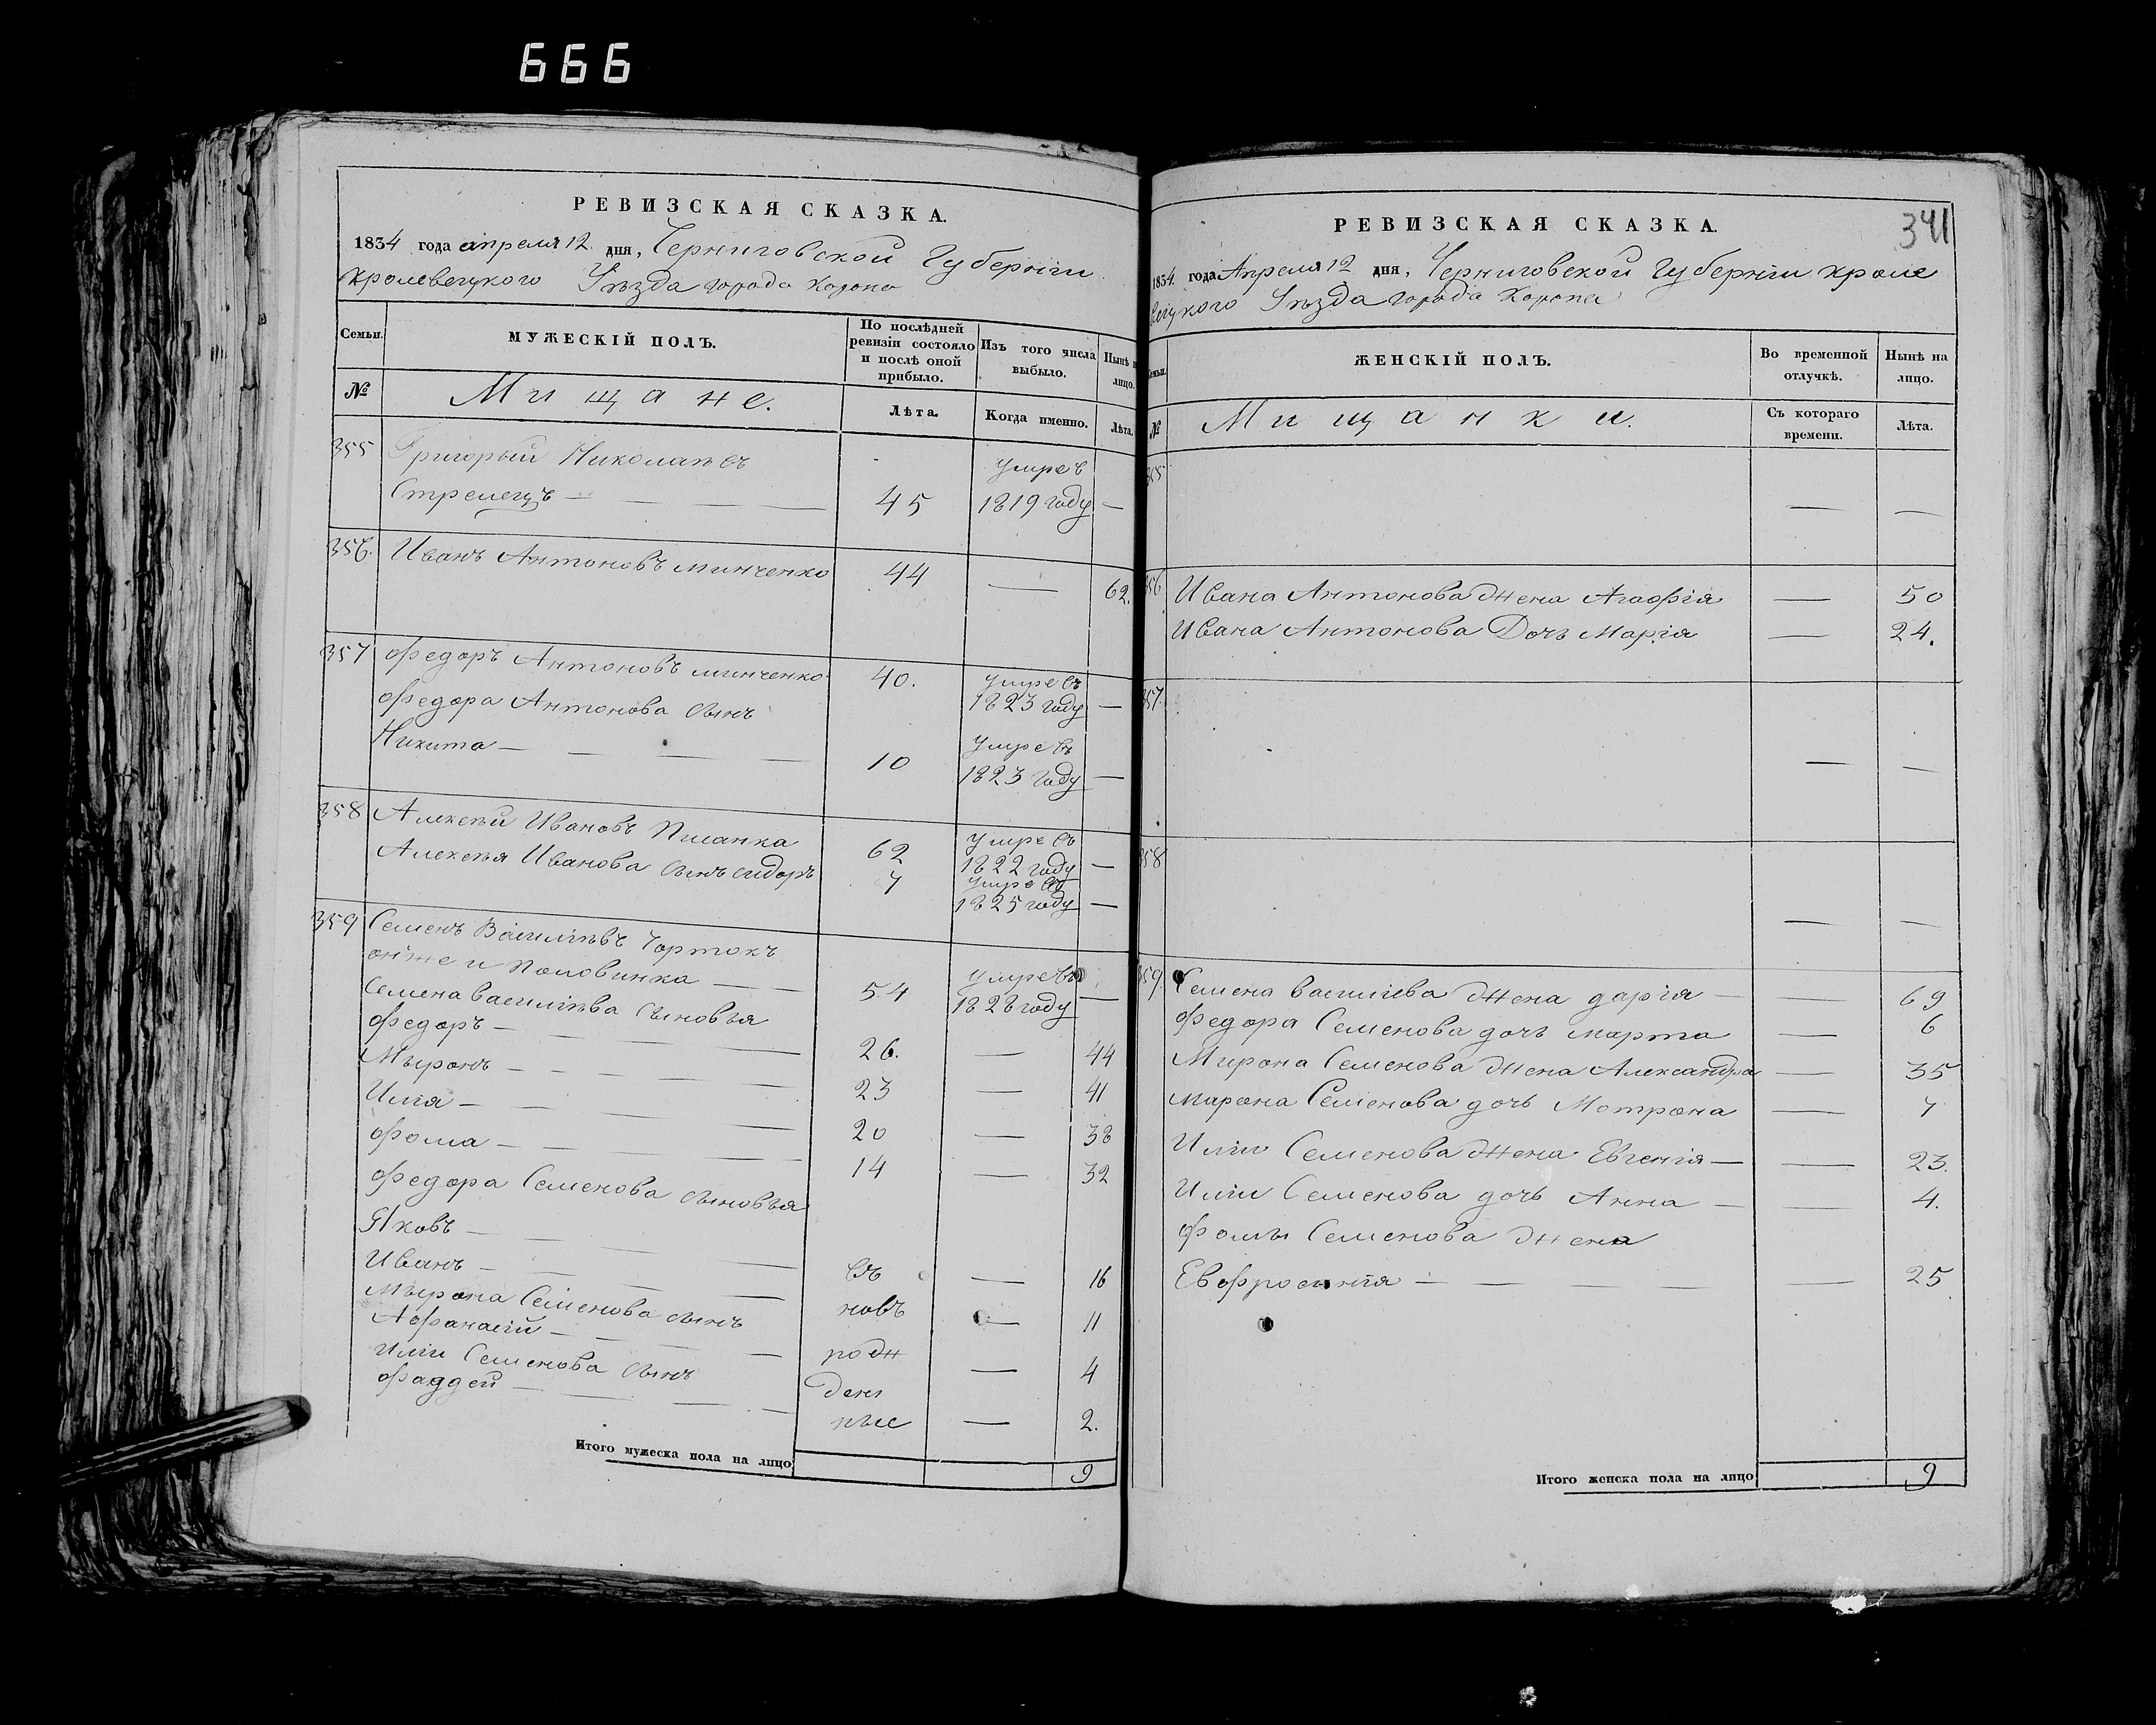 666
РЕВИЗСКАЯ СКАЗКА.
1834 года апреля 12 дня, Черниговской Губерніи
Кролевецкого Уѣзда города Коропа
Семьи. МУЖЕСКІЙ ПОЛЪ. По послѣдней ревизіи состояло и послѣ оной прибыло. Изъ того числа выбыло. Нынѣ н лицо.
№ Мищане. Лѣта. Когда именно. Лѣта.
355 Григорый Николаевъ умре в
Стрелецъ — — — 45 1819 году —
356. Иванъ Антоновъ Минченко 44 — 62.
357 Федоръ Антоновъ минченко 40. умре въ
1823 году —
Федора Антонова сынъ
Никита — — — — 10 умре въ
1823 году —
358 Алексѣй Ивановъ 62 умре въ
1822 году —
Алексѣя Иванова сынъ сидоръ 7 умре въ
1825 году —
359 Семенъ Василіевъ Чортокъ
онже и Половинка — — 54 умре въ
1828 году —
Семена василіева сыновья
Федоръ — — — — 26. — 44
Мыронъ — — — — 23 — 41
Илія — — — — 20 — 38
Фома — — — — 14 — 32
Федора Семенова сыновья
Яковъ — — — — въ — 16
Иванъ — — — — новъ — 11
Мырона Семенова сынъ
Афанасій — — — рож — 4
Иліи Семенова сынъ ден
Фаддей — — — ныє — 2.
Итого мужеска пола на лицо 9
341
РЕВИЗСКАЯ СКАЗКА.
1834 года Апреля 12 дня, Черниговской Губерніи Кроле
вецкого Уѣзда города Коропа
Семьи. ЖЕНСКІЙ ПОЛЪ. Во временной отлучкѣ. Нынѣ на лицо.
№ Мищанки. Съ котораго времени. Лѣта.
355 — —
356 Ивана Антонова жена Агафія — 50
Ивана Антонова Дочь Марія — 24.
357. — —
358 — —
359 Семена василіева жена дарія — — 69
Федора Семенова дочь марта — 6
Мирона Семенова жена Александра — 35
мирона Семенова дочь Мотрона — 7
Иліи Семенова жена Евгенія — — 23.
Иліи Семенова дочь Анна — — 4.
Фомы Семенова жена
Евфросинія — — — — 25
Итого женска пола на лицо 9